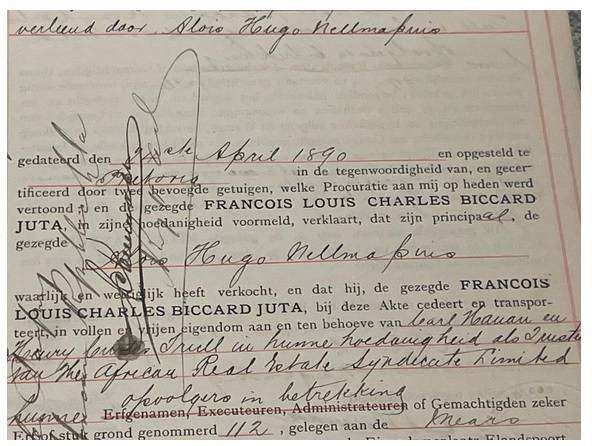 verleend door, Alois Hugo Nellmapius
gedateerd den April 1890 en opgesteld te
Pretoria in de tegenwoordigheid van, en gecer-
tificeerd door twee bevoegde getuigen, welke Procuratie aan mij op heden werd
vertoond; en de gezegde FRANCOIS LOUIS CHARLES BICCARD
JUTA, in zijne hoedanigheid voormeld, verklaart, dat zijn principaal, de
gezegde
Alois Hugo Nellmapius
waarlijk en wettiglijk heeft verkocht, en dat hij, de gezegde FRANCOIS
LOUIS CHARLES BICCARD JUTA, bij deze Akte cedeert en transpor-
teert, in vollen en vrijen eigendom aan en ten behoeve van Carl Hanau en
Henry Trull in hunne hoedanigheid als Trustees
van The African Real Estate Syndicate Limited
hunne opvolgers in betrekking
Erfgenamen, Executeuren, Administrateuren of Gemachtigden zeker
Erf of stuk grond genommerd 112, gelegen aan de